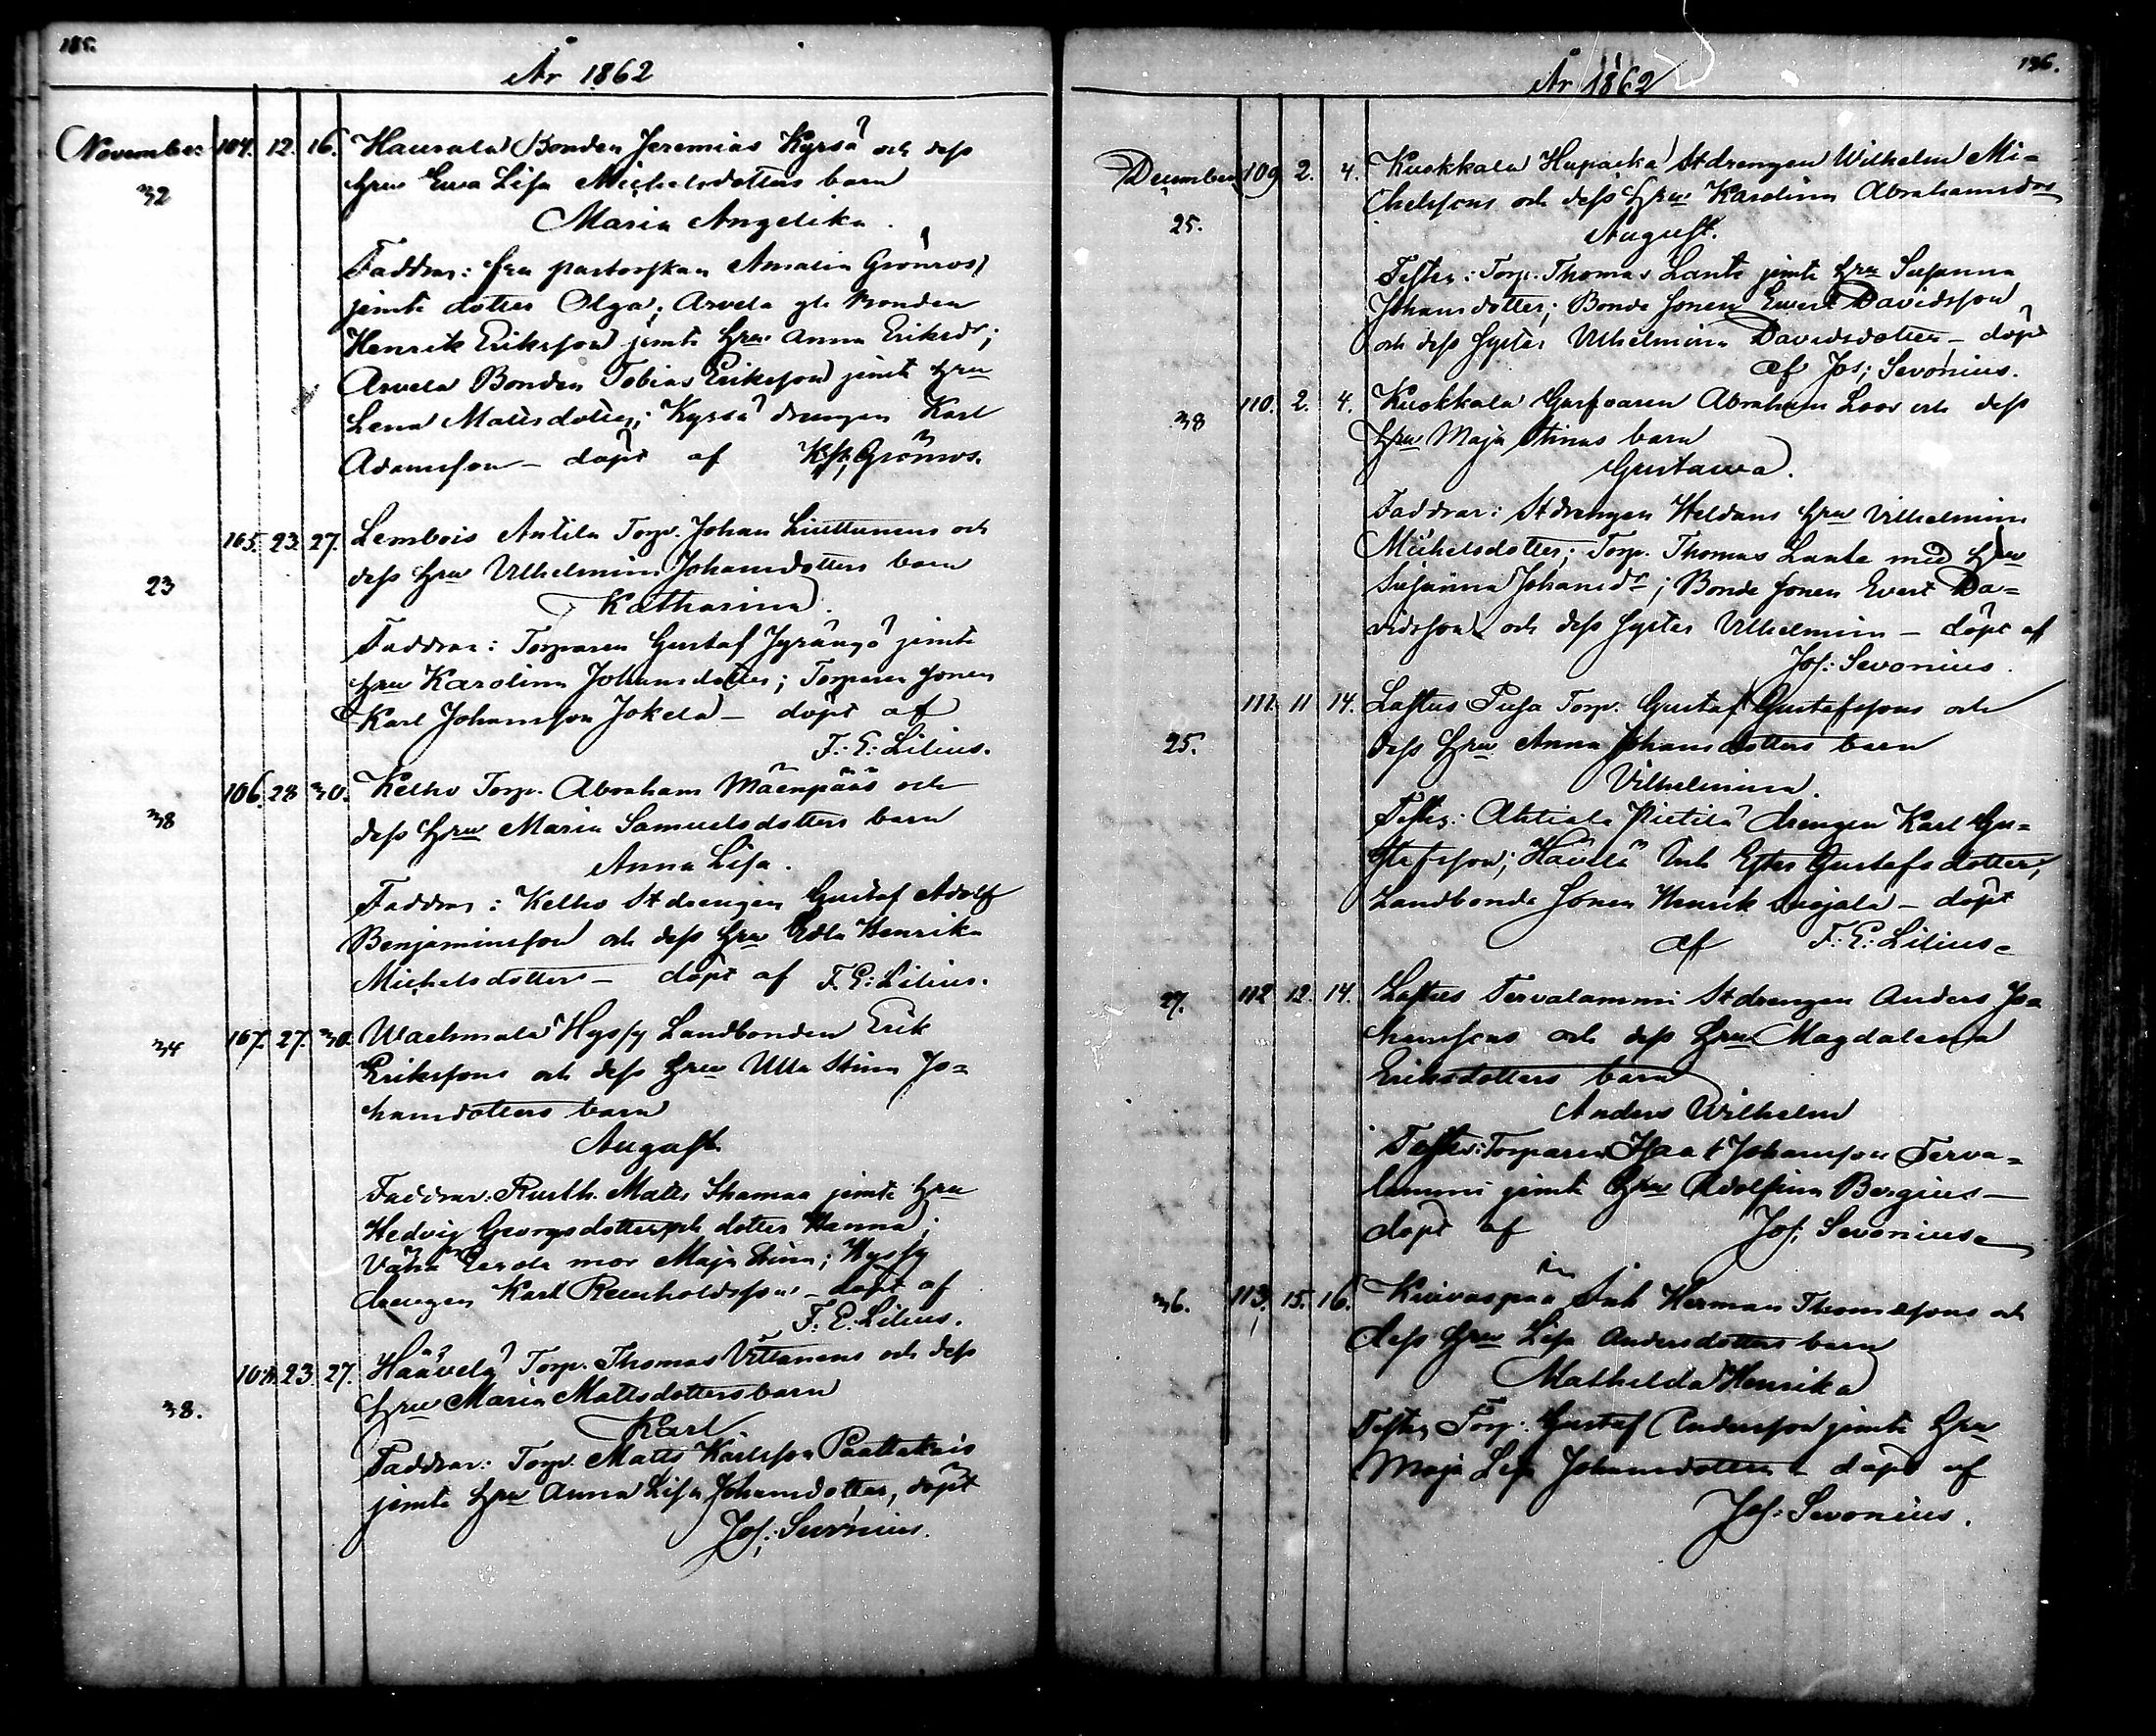 185.
År 1862
November 104. 12. 16. Haurala Bonden Jeremias Kyrsä och dess
32
hru Ewa Lisa Michelsdotters barn
Maria Angelika.
Faddrar: fru pastorskan Amalia Grönros
jemte dotter Olga; Arvela gle Bonden
Henrik Eriksson jemte hru Anna Eriksdr;
Arvela Bonden Tobias Eriksson jemte hru
Lena Mattsdotter; Kyrsä drengen Karl
Adamsson – döpt af Grönros.
105. 23. 27. Lembois Antila Torp. Johan Liuttunens och
23
dess hru Vilhelmina Johansdotters barn
Katharina.
Faddrar: Torparen Gustaf Jyrängö jemte
hru Karolina Johansdotter; Torparesonen
Karl Johansson Jokela – döpt af
F: E: Lilius.
106. 28 30. Kelho Torp. Abraham Mäenpääs och
38
dess hru Maria Samuelsdotters barn
Anna Lisa.
Faddrar: Kelho Stdrengen Gustaf Adolf
Benjaminsson och dess hru Edla Henrika
Michelsdotter – döpt af F. E: Lilius.
34
107. 27. 30. Wachmala Hyssy Landbonden Erik
Erikssons och dess hru Ulla Stina Jo=
hansdotters barn
August
Faddrar: Rusth. Matts Thomaa jemte hru
Hedvig Georgsdotter och dotter Hanna;
Vähä Eerola mor Maja Stina; Hyssy
drengen Karl Reinholdsson – döpt af
F. E. Lilius.
108. 23. 27. Häävelä Torp. Thomas Vittanens och dess
38.
hru Maria Mattsdotters barn
Karl
Faddrar: Torp. Matts Karlsson Paattakais
jemte hru Anna Lisa Johansdotter, döpt
Jos: Sevonius.
136.
År 1862
December 109. 2. 4. Kuokkala Stdrengen Wilhelm Mi=
25.
chelssons och dess hru Karolina Abrahamsdrs
August.
Testes: Torp. Thomas Lante jemte hru Susanna
Johansdotter; Bonde sonen Evert Davidsson
och dess syster Vilhelmina Davidsdotter – döpt
af Jos; Sevonius.
110. 2. 4. Kuokkala Garfvaren Abraham Loos och dess
38
hru Maja Stinas barn
Gustawa.
Faddrar: Stdrengen Heldans hru Vilhelmina
Michelsdotter; Torp. Thomas Lante med hru
Susanna Johansdr; Bonde sonen Evert Da=
vidsson och dess syster Vilhelmina – döpt af
Jos: Sevonius.
111. 11 14. Lastus Pusa Torp. Gustaf Gustafssons och
25.
dess hru Anna Johansdotters barn
Vilhelmina.
Testes: Ahtiala Pietilä drengen Karl Gu=
stafsson; Häävelä Inh Ester Gustafsdotter;
Landbonde sonen Henrik – döpt
af F: E: Lilius
27. 112 12. 14. Lastus Tervalammi Stdrengen Anders Jo=
hanssons och dess hru Magdalena
Eriksdotters barn
Anders Wilhelm
Testes: Torparen Isaak Johansson Terva=
lammi jemte hru Adolfina Bergius –
döpt af Jos; Sevonius
36. 113. 15. 16. Kuivaspään Inh Herman Thomassons och
dess hru Lisa Andersdotters barn
Mathilda Henrika
Testes Torp. Gustaf Andersson jemte hru
Maja Lisa Johansdotter – döpt af
Jos: Sevonius.